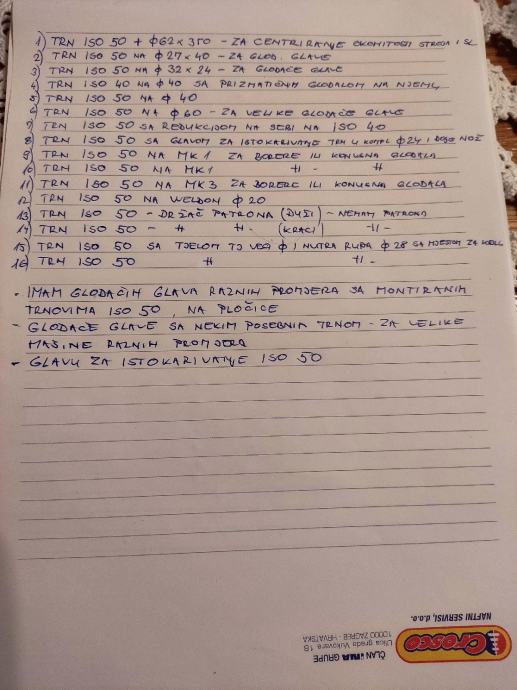 1) TRN ISO 50 + ф62x350 - ZA CENTRIRANJE OKOMITOSTI STROJA I SL
2) TRN ISO 50 NA ф 27x40 - ZA GLOD. GLAVE
3) TRN ISO 50 NA ф 32x24 - ZA GLODAĆE GLAVE
4) TRN ISO 40 NA ф 40 SA PRIZMATIČNIM GLODALOM NA NJEMU
5) TRN ISO 50 NA ф 40
6) TRN ISO 50 NA ф 60 - ZA VELIKE GLODAĆE GLAVE
7) TRN ISO 50 SA REDUKCIJOM NA SEBI NA ISO 40
8) TRN ISO 50 SA GLAVOM ZA ISTOKARIVANJE TRN U KOMPL ф 24 I NOŽ
9) TRN ISO 50 NA MK1 ZA BORERE ILI KONUSNA GLODALA
10) TRN ISO 50 NA MK1 -11- -11-
11) TRN ISO 50 NA MK3 ZA BORERE ILI KONUSNA GLODALA
12) TRN ISO 50 NA WELDON ф 20
13) TRN ISO 50 - DRŽAČ PATRONA (DUŽI) - NEMAM PATRONA
14) TRN ISO 50 - -11- -11- (KRAĆI) -11-
15) TRN ISO 50 SA TJELOM ф I NUTRA RUPA ф 28 SA MJESTOM ZA
16) TRN ISO 50 -11- -11-
- IMAM GLODAĆIH GLAVA RAZNIH PROMJERA SA MONTIRANIM
TRNOVIMA ISO 50, NA PLOČICE
- GLODAĆE GLAVE SA NEKIM POSEBNIM TRNOM - ZA VELIKE
MAŠINE RAZNIH PROMJERA
- GLAVU ZA ISTOKARIVANJE ISO 50
Crosco
NAFTNI SERVISI, d.o.o.
ČLAN INA GRUPE
Ulica grada Vukovara 18
10000 ZAGREB - HRVATSKA